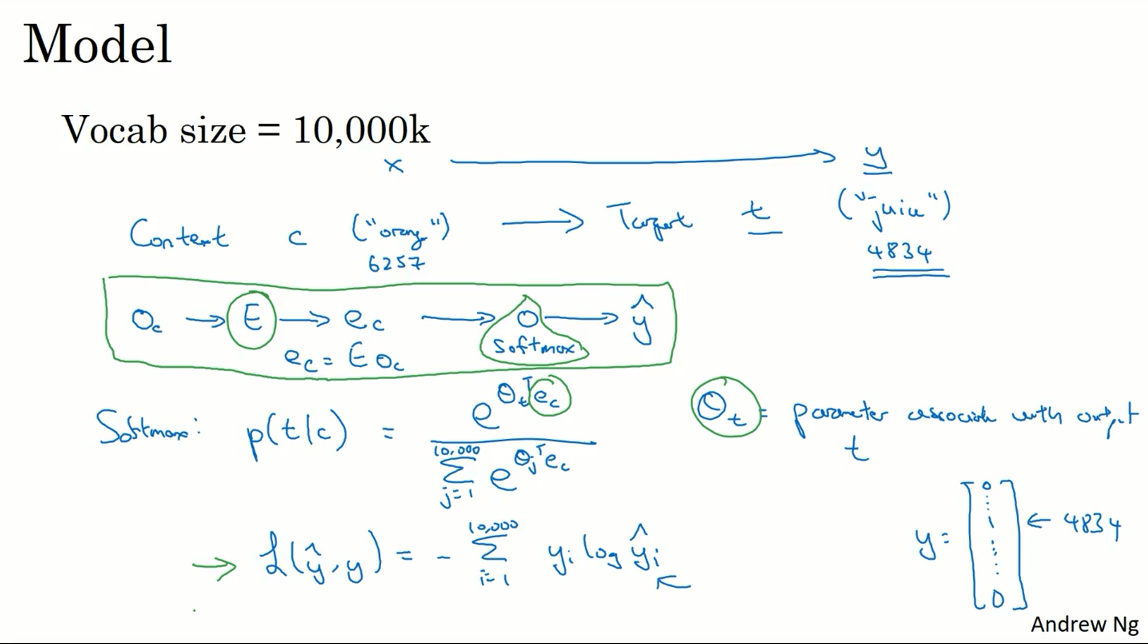 Model
Vocab size = 10,000k
x ⟶ y
Content c ("orange") ⟶ Target t ("juice")
6257 4834
O_c → E → e_c → O → ŷ
softmax
e_c = E O_c
Softmax: p(t|c) = e^{θ_t^T e_c} / Σ_{j=1}^{10,000} e^{θ_j^T e_c}
θ_t = parameter associated with output t
ℒ(ŷ, y) = - Σ_{i=1}^{10,000} y_i log ŷ_i ←
y = [0 ⋮ 1 ⋮ 0] ← 4834
Andrew Ng